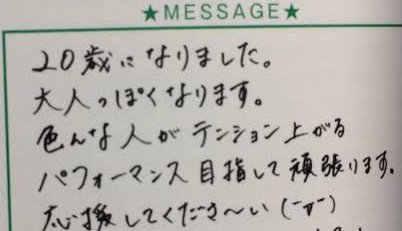 ★MESSAGE★
20歳になりました。
大人っぽくなります。
色んな人がテンション上がる
パフォーマンス目指して頑張ります。
応援してくださ〜い(-▽-)